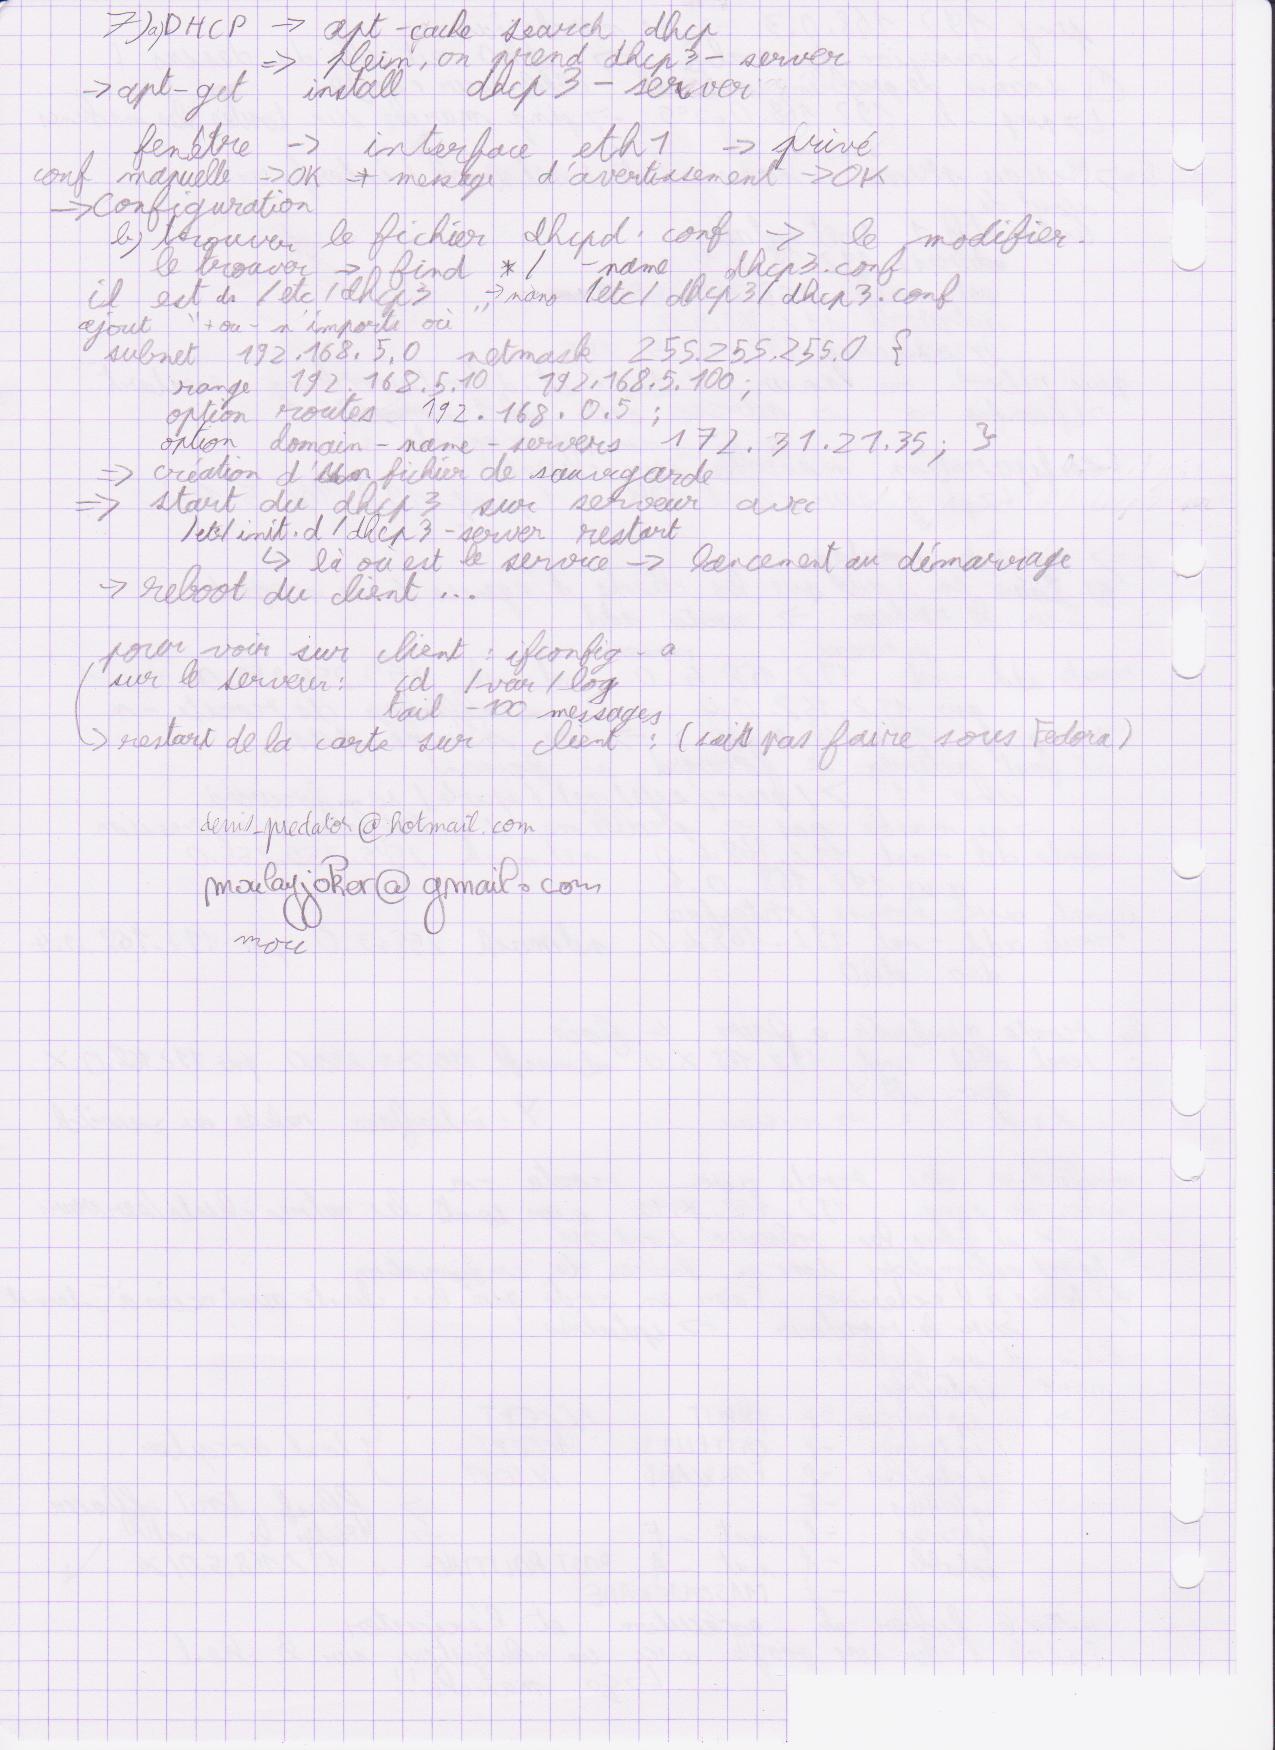 7) a) DHCP -> apt-cache search dhcp
=> plein, on prend dhcp3-server
-> apt-get install dhcp3-server
fenêtre -> interface eth1 -> privé
conf manuelle -> OK -> message d'avertissement -> OK
-> Configuration
b) trouver le fichier dhcpd.conf -> le modifier.
le trouver -> find */ -name dhcp3.conf
il est ds /etc/dhcp3 -> nano /etc/dhcp3/dhcp3.conf
ajout "+ ou - n'importe où"
subnet 192.168.5.0 netmask 255.255.255.0 {
range 192.168.5.10 192.168.5.100;
option routes 192.168.0.5;
option domain-name-servers 172.31.21.35; }
=> création d'un fichier de sauvgarde
=> start du dhcp3 sur serveur avec
/etc/init.d/dhcp3-server restart
↳ là où est le service -> lancement au démarrage
-> reboot du client ...
pour voir sur client : ifconfig -a
sur le serveur : cd /var/log
tail -100 messages
-> restart de la carte sur client : (sait pas faire sous Fedora)
denis_predator@hotmail.com
moulayjoker@gmail.com
mou